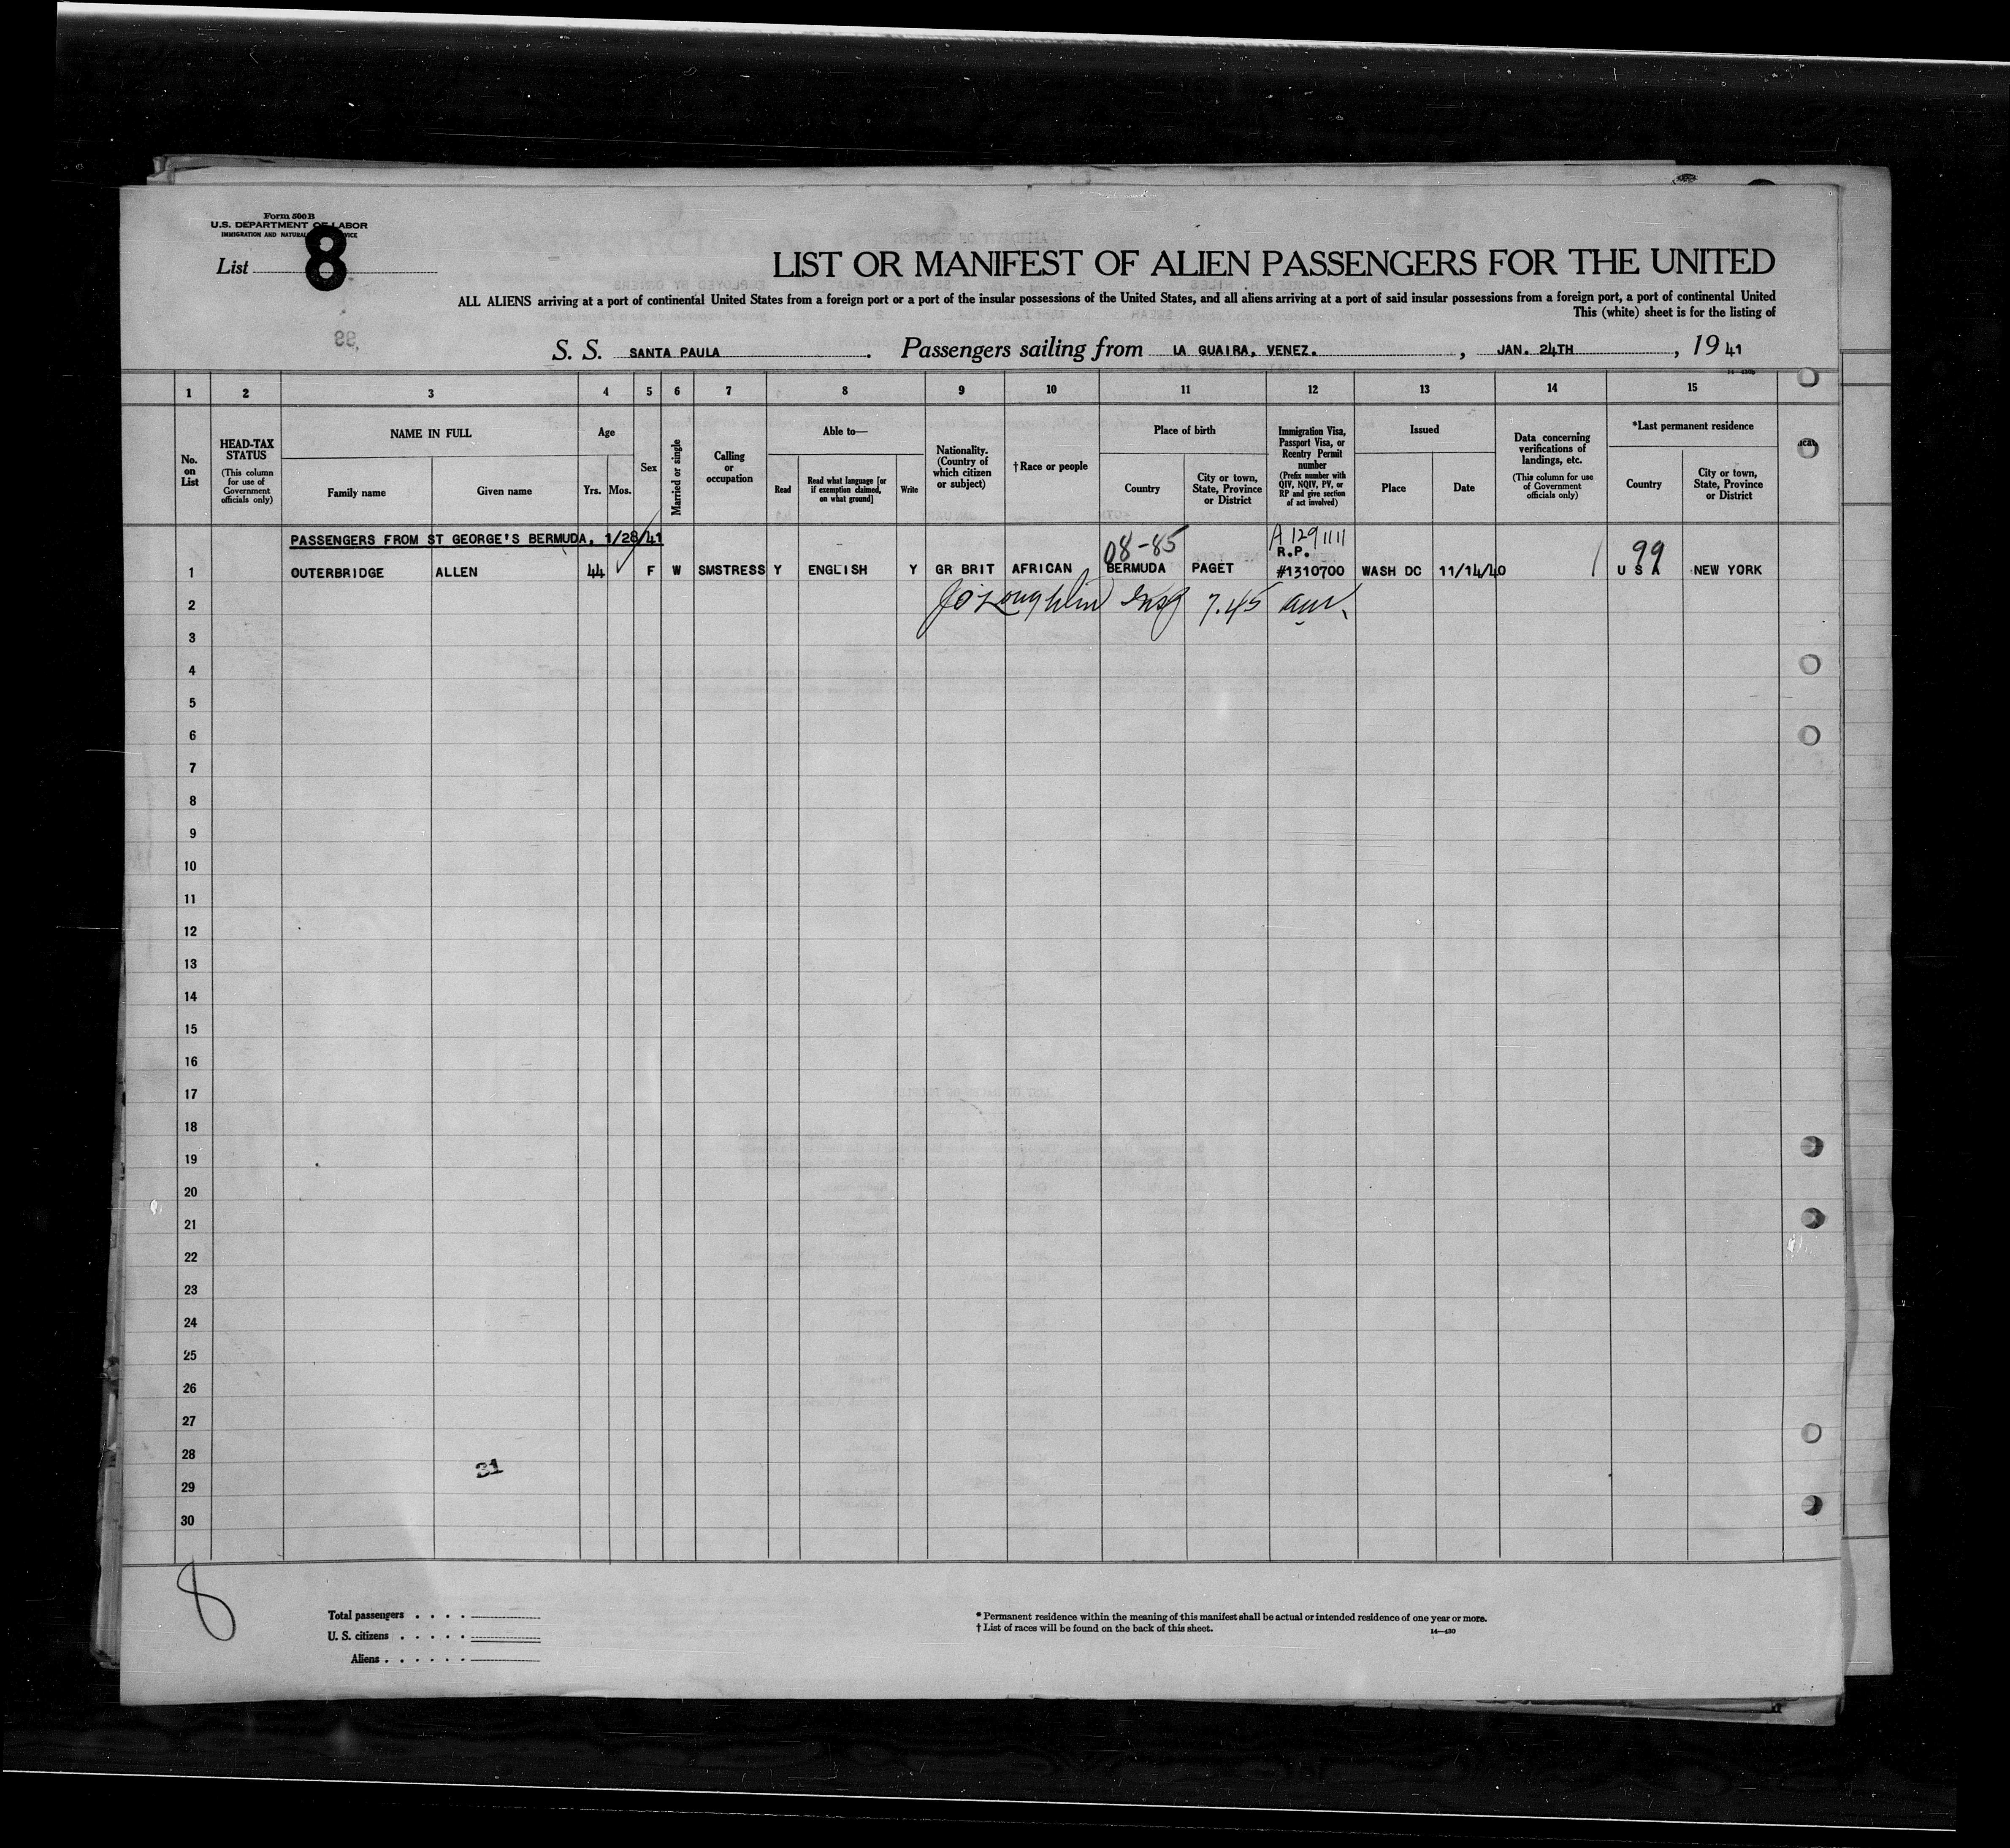 Form 500 B
U.S. DEPARTMENT OF LABOR
IMMIGRATION AND NATURAL
List 8
LIST OR MANIFEST OF ALIEN PASSENGERS FOR THE UNITED
ALL ALIENS arriving at a port of continental United States from a foreign port or a port of the insular possessions of the United States, and all aliens arriving at a port of said insular possessions from a foreign port, a port of continental United
This (white) sheet is for the listing of
S. S. SANTA PAULA. Passengers sailing from LA GUAIRA, VENEZ., JAN. 24TH, 1941
1 2 3 4 5 6 7 8 9 10 11 12 13 14 15
No. on List
HEAD-TAX STATUS
(This column for use of Government officials only)
NAME IN FULL
Family name Given name
Age
Yrs. Mos.
Sex
Married or single
Calling or occupation
Able to—
Read
Read what language [or if exemption claimed, on what ground]
Write
Nationality. (Country of which citizen or subject)
†Race or people
Place of birth
Country
City or town, State, Province or District
Immigration Visa, Passport Visa, or Reentry Permit number
(Prefix number with QIV, NQIV, PV, or RP and give section of act involved)
Issued
Place Date
Data concerning verifications of landings, etc.
(This column for use of Government officials only)
*Last permanent residence
Country
City or town, State, Province or District
PASSENGERS FROM ST GEORGE'S BERMUDA, 1/28/41
08-85 A1291111 99
R.P.
1 OUTERBRIDGE ALLEN 44 ✓ F W SMSTRESS Y ENGLISH Y GR BRIT AFRICAN BERMUDA PAGET #1310700 WASH DC 11/14/40 U S A NEW YORK
2 7.45
3
4
5
6
7
8
9
10
11
12
13
14
15
16
17
18
19
20
21
22
23
24
25
26
27
28
31
29
30
8
Total passengers . . . .
U. S. citizens . . . . .
Aliens . . . . . .
* Permanent residence within the meaning of this manifest shall be actual or intended residence of one year or more.
† List of races will be found on the back of this sheet.
14—430